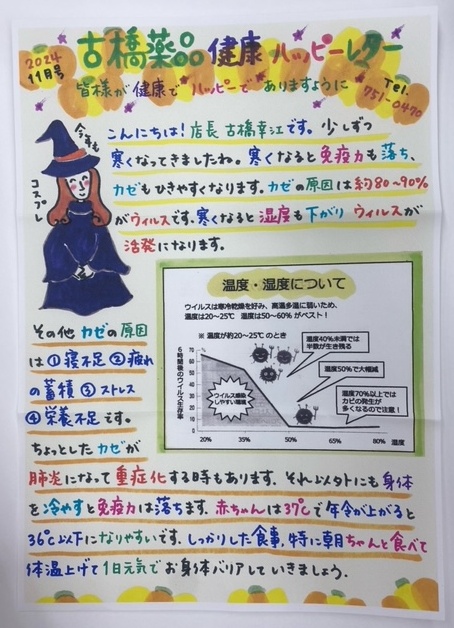 2024
11月号
古橋薬品 健康 ハッピーレター
皆様が健康で"ハッピーで"ありますように
Tel.
751-0470
今年も
コスプレ
こんにちは!店長 古橋幸江です。少しずつ
寒くなってきましたね。寒くなると免疫力も落ち、
カゼもひきやすくなります。カゼの原因は約80~90%
がウィルスです。寒くなると湿度も下がり ウィルスが
活発になります。
温度・湿度について
ウイルスは寒冷乾燥を好み、高温多湿に弱いため、
温度は20~25℃ 湿度は50~60%がベスト!
※ 温度が約20~25℃のとき
6時間後のウイルス生存率
70
60
50
40
30
20
10
0
20% 35% 50% 65% 80% 湿度
ウイルス感染
しやすい環境
湿度40%未満では
半数が生き残る
湿度50%で大幅減
湿度70%以上では
カビの発生が
多くなるので注意!
その他 カゼの原因
は①寝不足②疲れ
の蓄積③ストレス
④栄養不足です。
ちょっとしたカゼが
肺炎になって重症化する時もあります。それ以外にも身体
を冷やすと免疫力は落ちます。赤ちゃんは37℃で年令が上がると
36℃以下になりやすいです。しっかりした食事、特に朝ちゃんと食べて
体温上げて1日元気でお身体バリアしていきましょう。